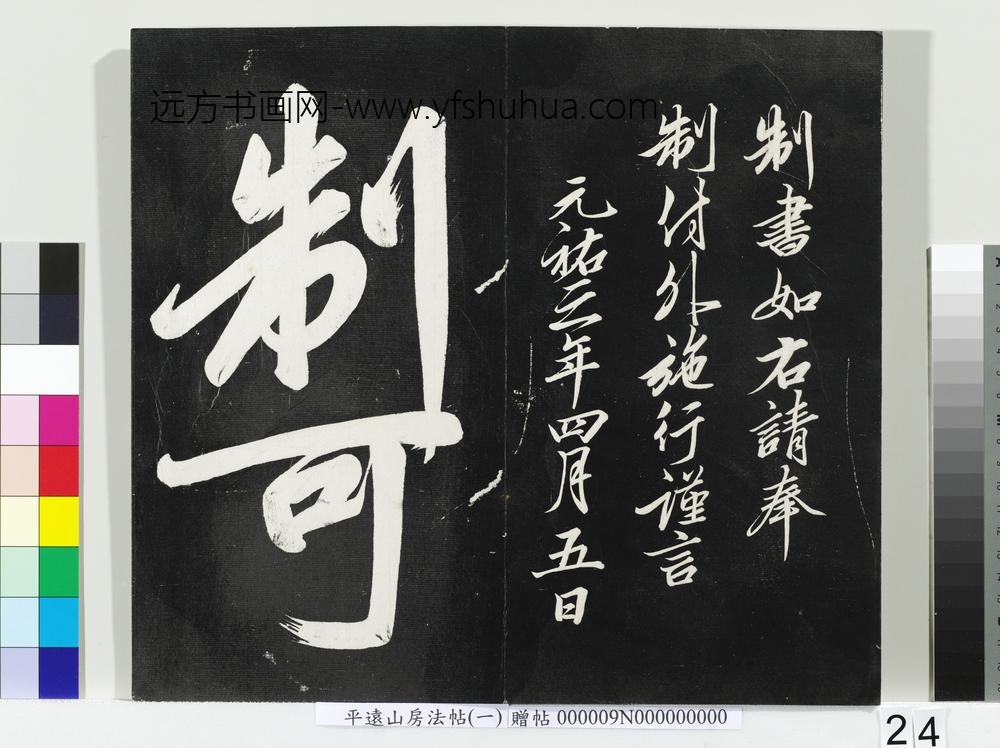 远方书画网-www.yfshuhua.com
制書如右請奉
制付外施行謹言
元祐三年四月五日
制可
平遠山房法帖(一) 贈帖 000009N000000000
24